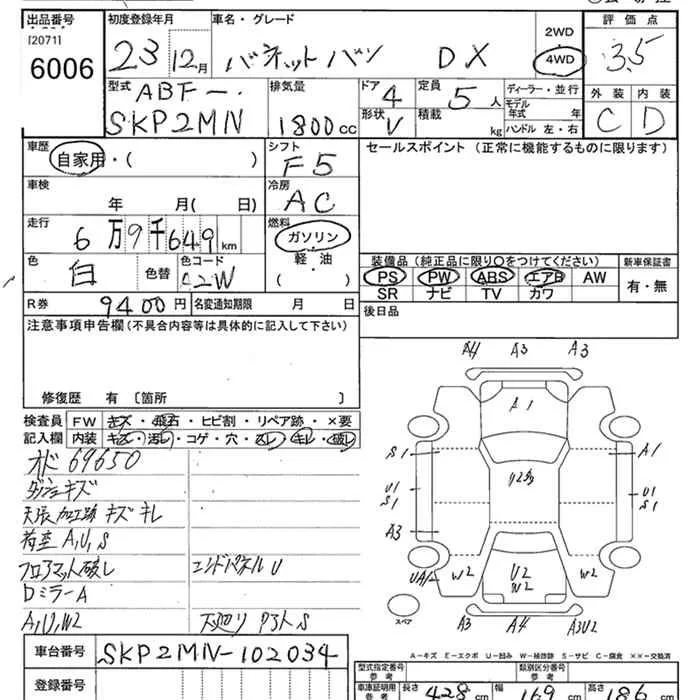 出品番号 初度登録年月 車名・グレード 2WD 4WD 評価点
I20711
6006 23 12月 バネットバン DX 3.5
型式 排気量 ドア 4 定員 5人 ディーラー・並行 外装 内装
ABF-
SKP2MN 1800cc 形状 V 積載 kg モデル年式 年 ハンドル 左・右 C D
車歴 シフト セールスポイント (正常に機能するものに限ります)
自家用・( ) F5
車検 冷房
年 月( 日) AC
走行 燃料
6万9千649km ガソリン
色 色コード 軽油 装備品(純正品に限り○をつけてください) 新車保証書
白 色替 ( ) PS PW ABS エアB AW 有・無
SR ナビ TV カワ
R券 9400円 名変通知期限 月 日 後日品
注意事項申告欄(不具合内容等は具体的に記入して下さい)
修復歴 有 〔箇所 〕
検査員 FW キズ・飛石・ヒビ割・リペア跡・×要
記入欄 内装 キズ・汚レ・コゲ・穴・スレ・キレ・破レ
オド69650
ダッシュキズ
天張加工跡 キズ キレ
荷室 A,U,S
フロアマット破レ エンドパネルU
DミラーA
A,U,W2 下廻り サビ S
A4 A3 A3
A1
S1 A1
U1
S1 U1
S1
A3
UA1 W2 U2
W2 W2
A3 A4 A3U2
スペア
A-キズ E-エクボ U-凹み W-補修跡 S-サビ C-腐食 ××-交換済
車台番号 SKP2MN-102034
登録番号
型式指定番号 参考 類別区分番号 参考
車庫証明用 参考 長さ 428cm 幅 169cm 高さ 186cm